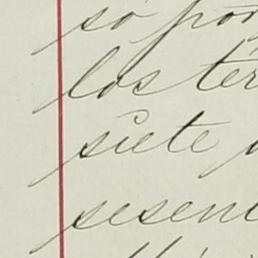 so por
los tér
siete
sesent